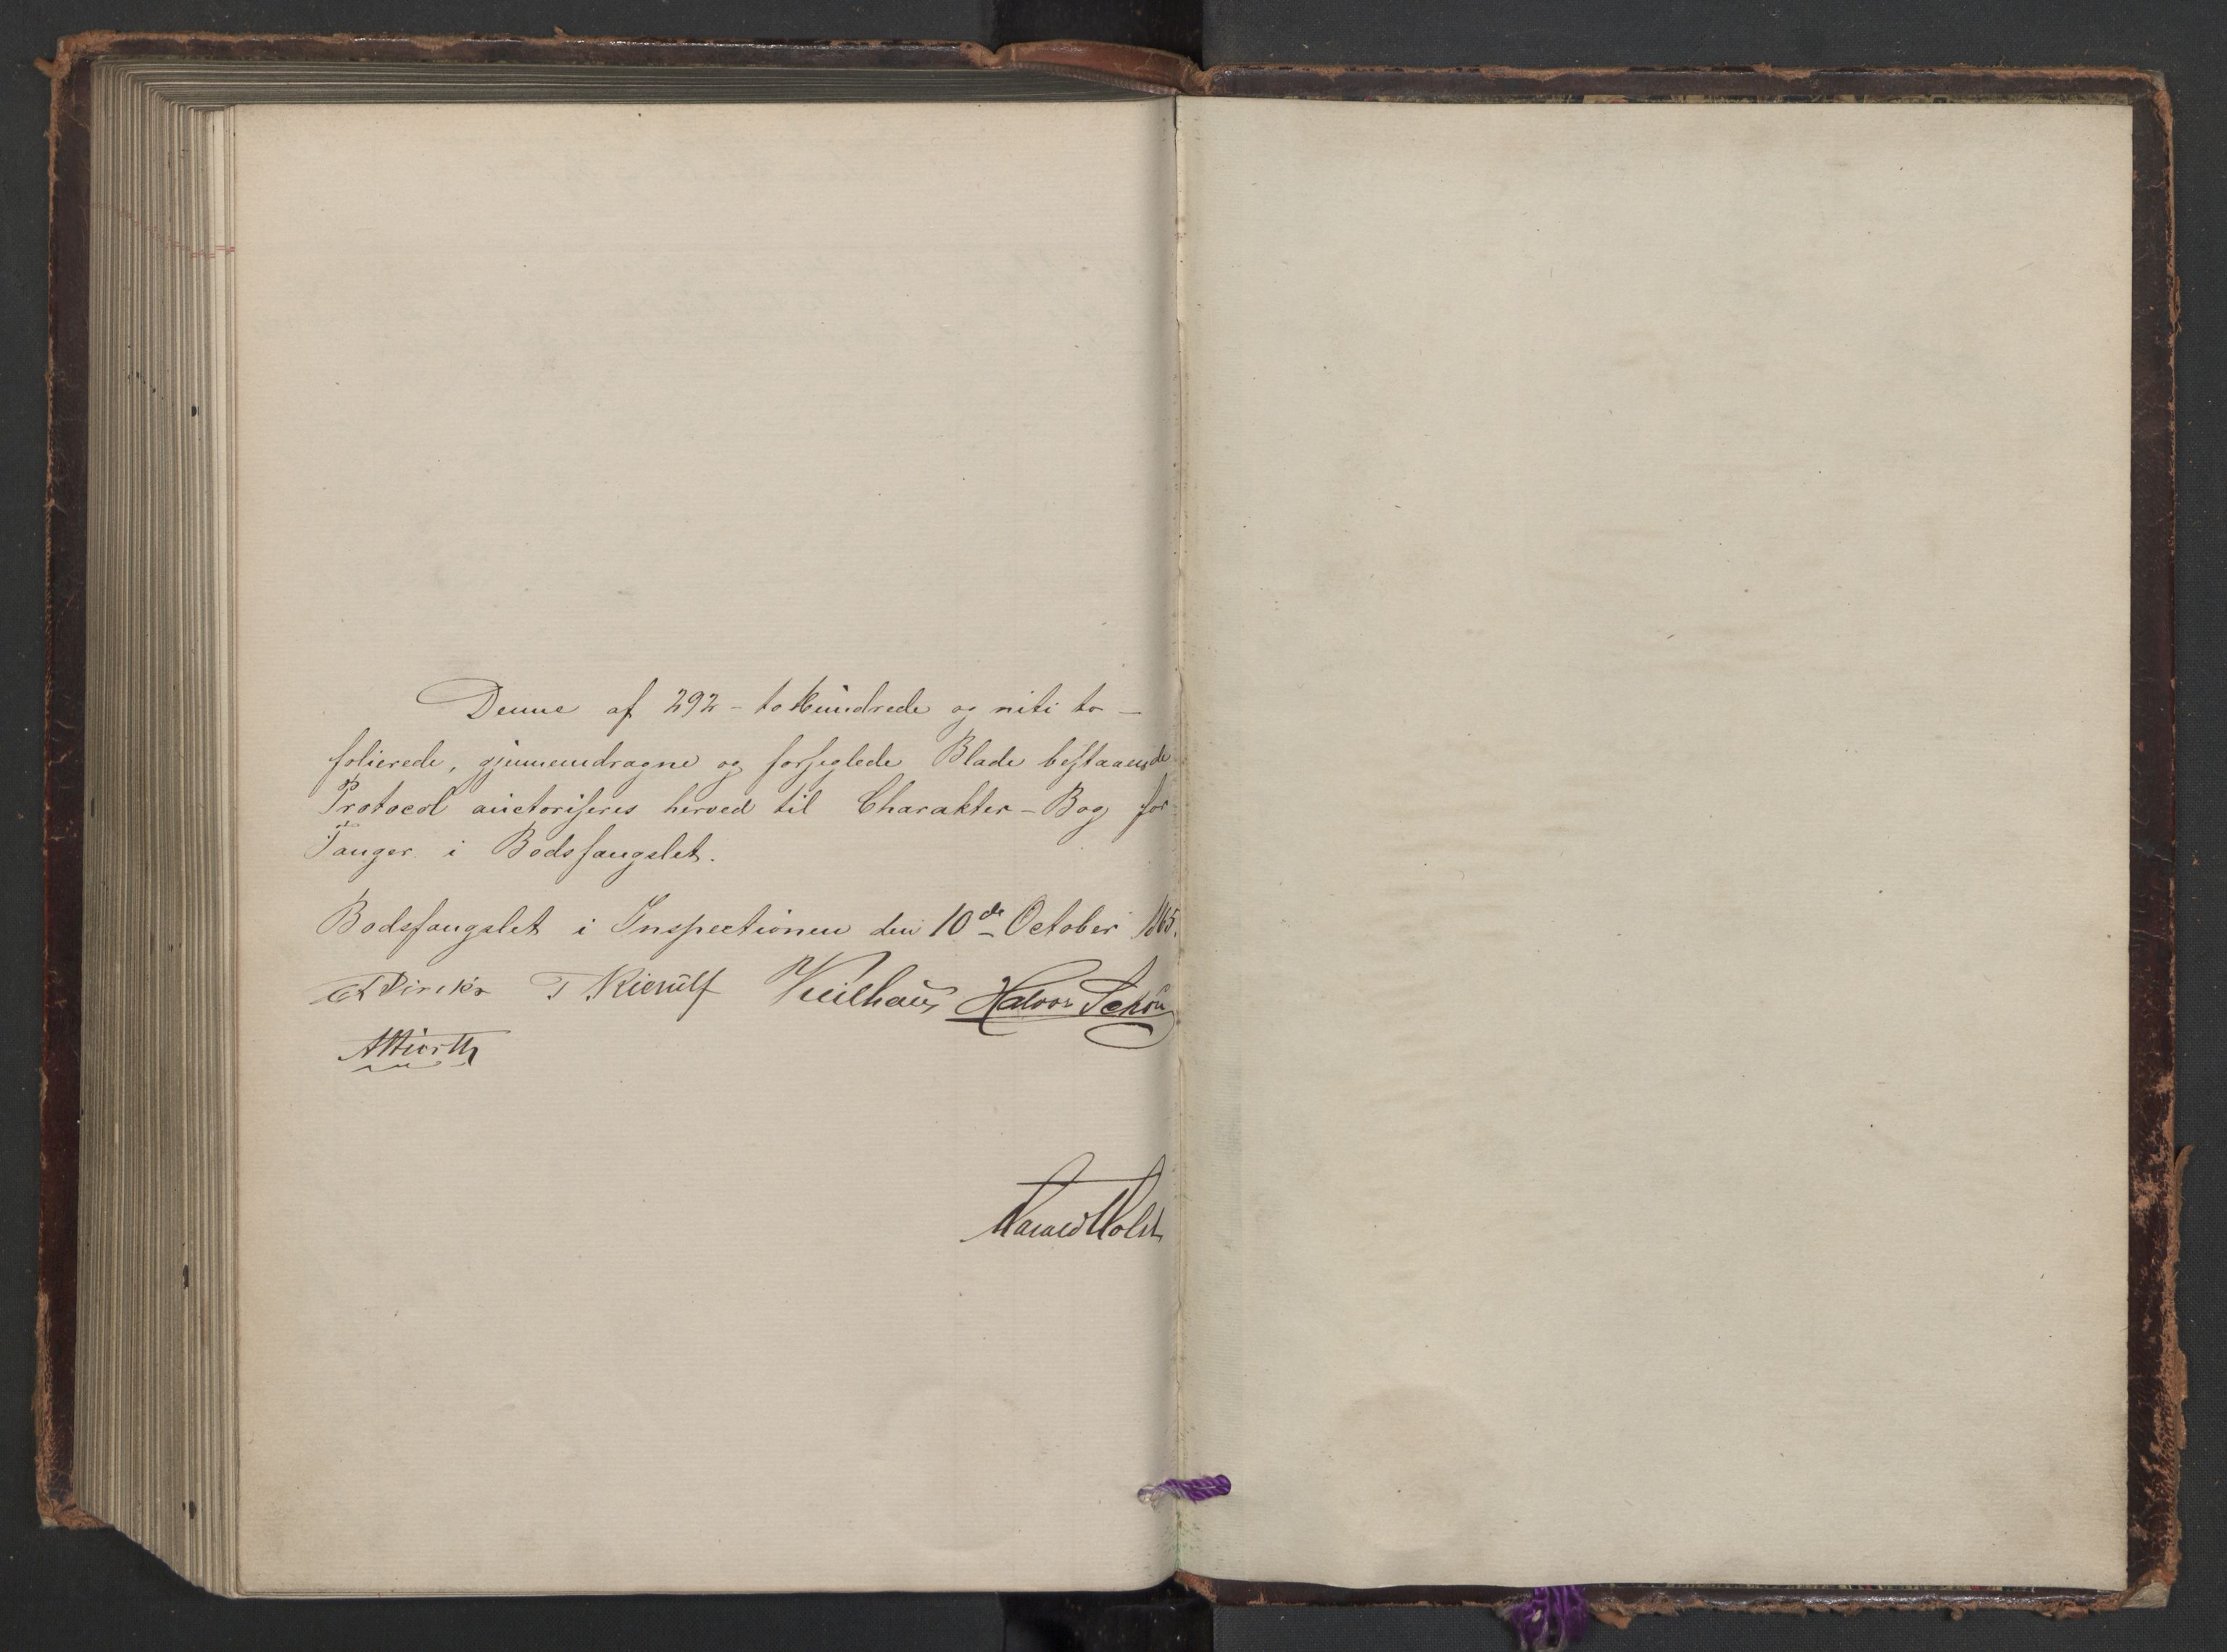 Denne af 292 - to Hundrede og niti to -
folierede, gjennemdragne og forseglede Blade bestaaende
Protocol auctoriseres herved til Charakter - Bog for
Fanger i Bodsfængslet.
Bodsfængslet i Inspectionen den 10de October 1865.
Diriks T Kierulf Keilhau Halvor Schou
Harald Holst